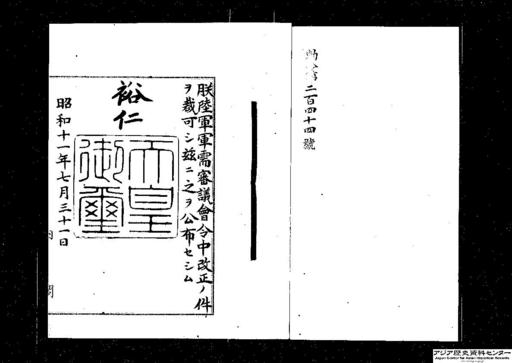 勅令第二百四十四號
朕陸軍軍需審議會令中改正ノ件
ヲ裁可シ茲ニ之ヲ公布セシム
裕仁
天皇
御璽
昭和十一年七月三十一日
内閣
アジア歴史資料センター
Japan Center for Asian Historical Records